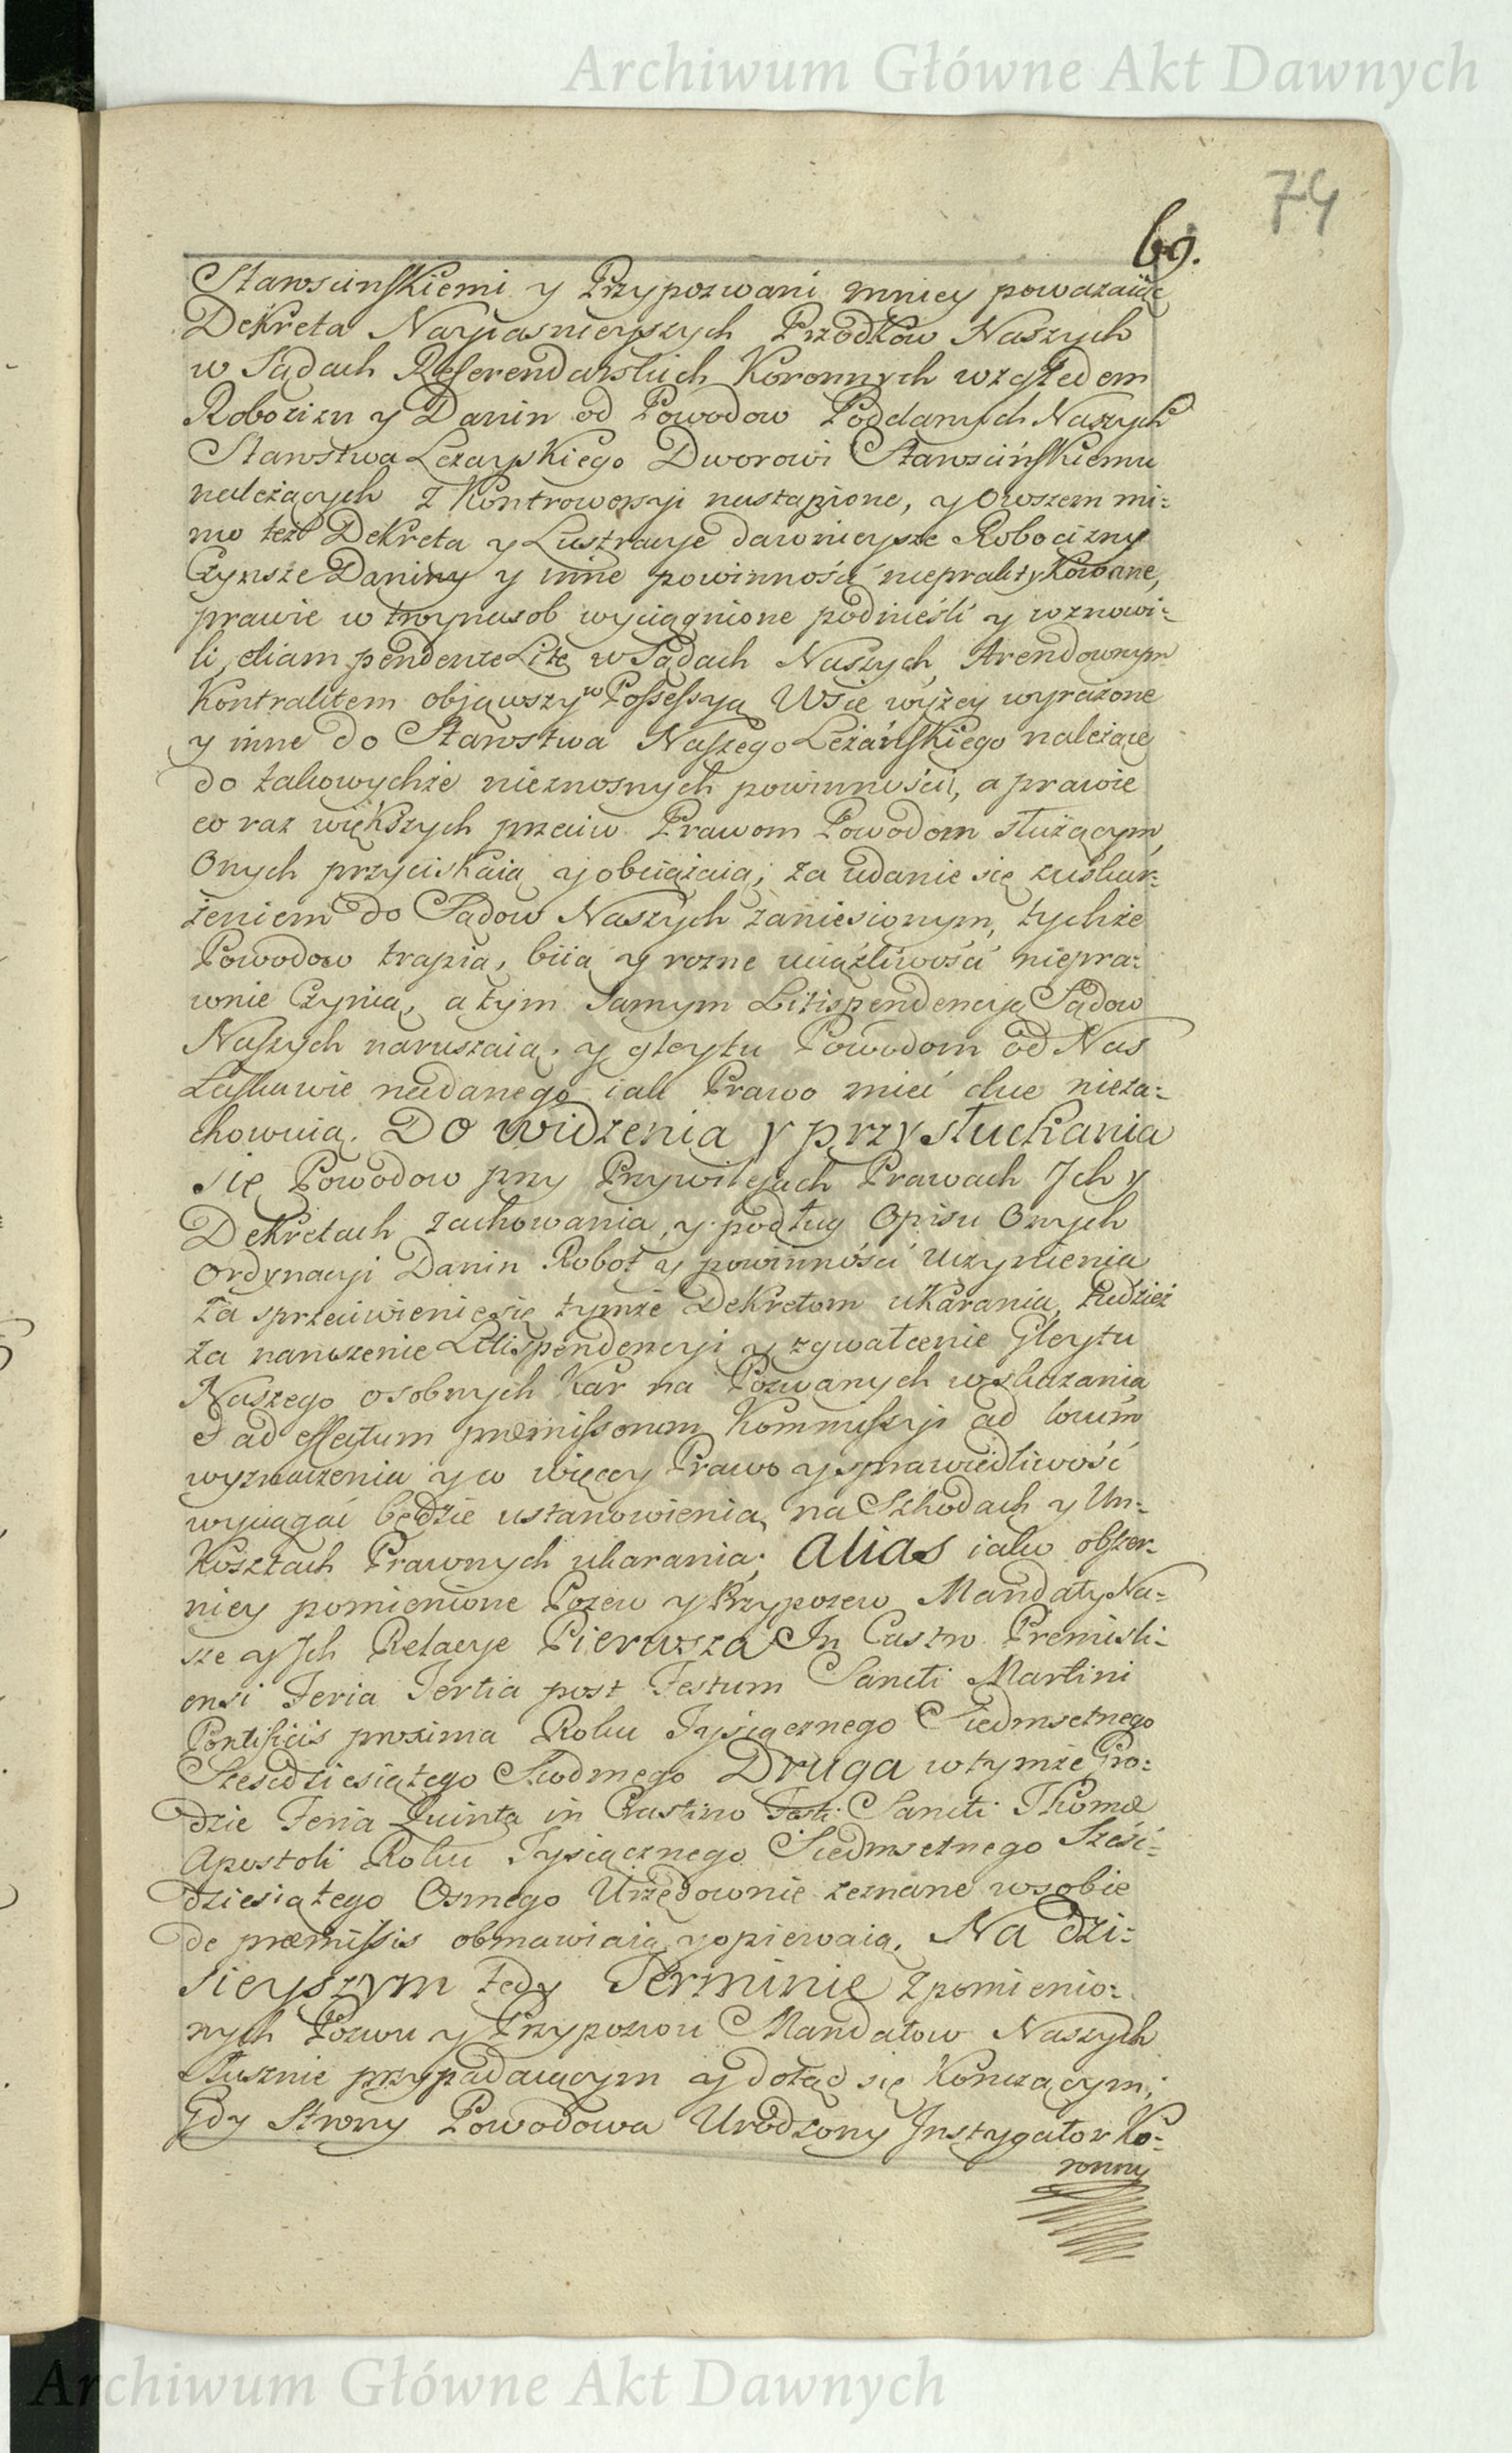 Archiwum Główne Akt Dawnych
74
69.
Starościńskiemi y Przypozwani mniey poważaiąc
Dekreta Nayiasnieyszych Przodkow Naszych
w Sądach Referendarskich Koronnych względem
Robocizn y Danin od Powodow Poddanych Naszych
Starostwa Leżayskiego Dworowi Starościńskiemu
należących z Kontrowersyi nastąpione, y owszem mi:
mo też Dekreta y Lustracye dawnieysze Robocizny
Czynsze Daniny y inne powinności niepraktykowane,
prawie w troynasob wyciągnione podnieśli y wznowi:
li, etiam pendente Lite w Sądach Naszych Arendownym
Kontraktem obiąwszy w Possessyą Wsie wyżey wyrażone
y inne do Starostwa Naszego Leżańskiego należące
do takowychże nieznosnych powinności, a prawie
co raz większych przeciw Prawom Powodom służącym,
Onych przyciskaią y obciążaią; za udanie się z uskar:
żeniem do Sądow Naszych zaniesionym, tychże
Powodow trapią, biią y rozne uciążliwości niepra:
wnie Czynią, a tym samym Litispendencyą Sądow
Naszych naruszaią, y gleytu Powodom od Nas
Łaskawie nadanego iak Prawo mieć chce nieza:
chowuią. Do widzenia y przysłuchania
się Powodow przy Przywileiach Prawach Ich y
Dekretach zachowania, y podług Opisu Onych
Ordynacyi Danin Robot y powinności uczynienia
za sprzeciwienie się tymże Dekretom ukarania, tudzież
za naruszenie Litispendencyi y zgwałcenie Gleytu
Naszego osobnych Kar na Pozwanych wskazania
I ad effectum præmissorum Kommissyi ad locum
wyznaczenia y co więcey Prawo y sprawiedliwość
wyciągać będzie ustanowienia, na Szkodach y Un:
Kosztach Prawnych ukarania; Alias iako obszer:
niey pomienione Pozew y Przypozew Mandaty Na:
sze y Ich Relacye Pierwsza In Castro Premisli:
ensi Feria Tertia post Festum Sancti Martini
Pontificis proxima Roku Tysiącznego Siedmsetnego
Szesćdziesiątego Siodmego Druga w tymże Gro:
dzie Feria Quinta in Crastino Festi Sancti Thomæ
Apostoli Roku Tysiącznego Siedmsetnego Sześć:
dziesiątego Osmego Urzędownie zeznane w sobie
de præmissis obmawiaią y opiewaią. Na dzi:
sieyszym tedy Terminie z pomienio:
nych Pozwu y Przypozwu Mandatow Naszych
słusznie przypadaiącym y dotąd się Kończącym;
Gdy Strony Powodowa Urodzony Instygator Ko:
ronny
Archiwum Główne Akt Dawnych